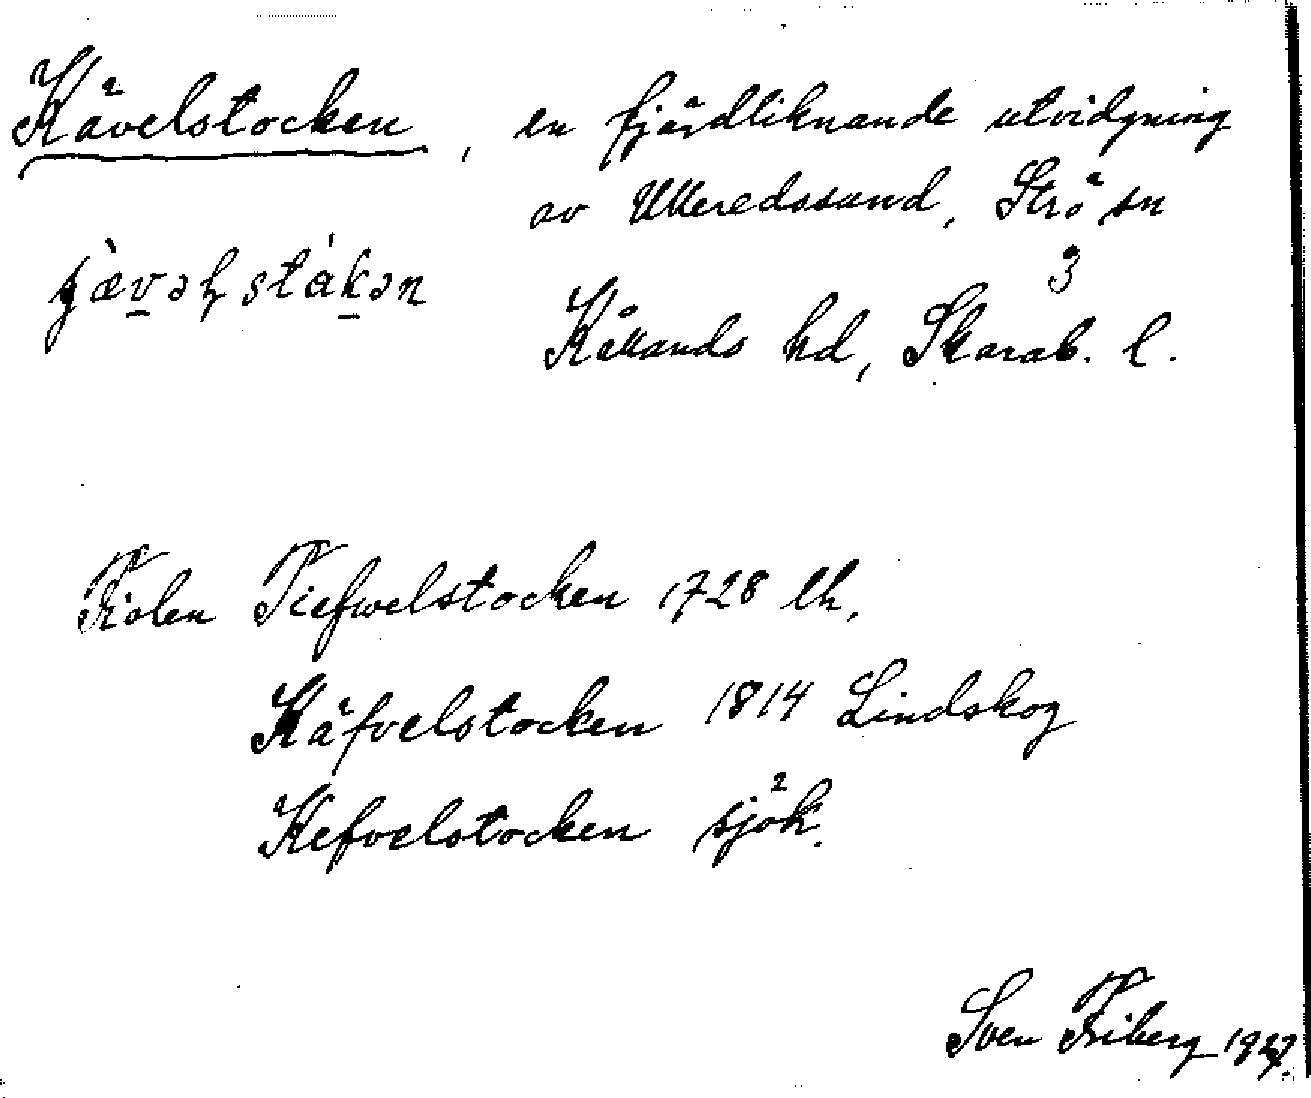 Kävelstocken, en fjärdliknande utvidgning
av Ulleredssund, Strö sn
3
Kållands hd, Skarab. l.
Tiefwelstocken 1728 lh.
Käfvelstocken 1814 Lindskog
Kefvelstocken sjök.
Sven Friberg 1927.